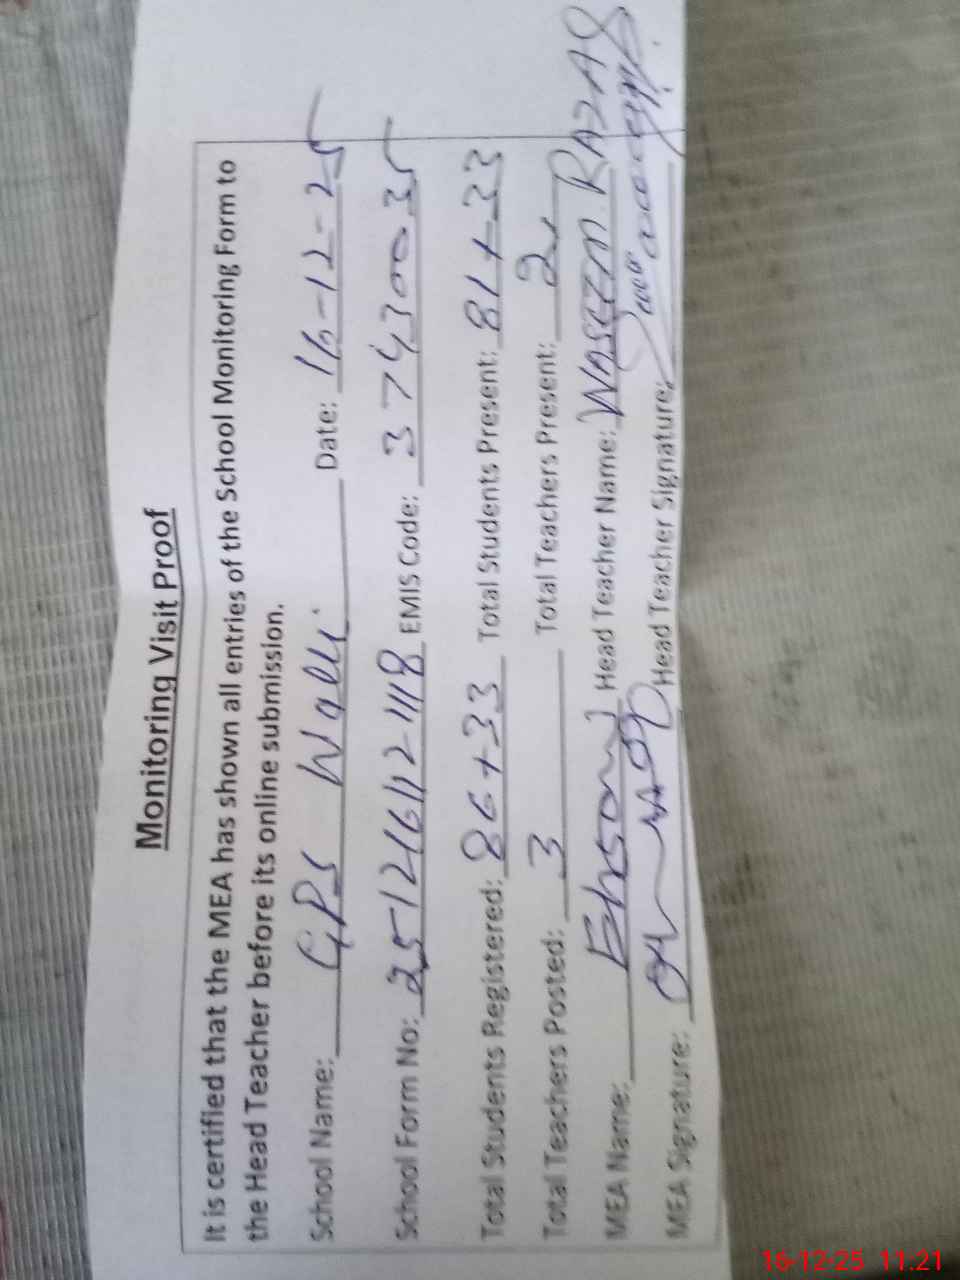 Monitoring Visit Proof
It is certified that the MEA has shown all entries of the School Monitoring Form to
the Head Teacher before its online submission.
School Name: GPS Walli Date: 16-12-25
School Form No: 2512161121118 EMIS Code: 37430035
Total Students Registered: 86+33 Total Students Present: 81+33
Total Teachers Posted: 3 Total Teachers Present: 2
MEA Name: Head Teacher Name: WASEEM RAZA
MEA Signature: Head Teacher Signature:
16-12-25 11:21